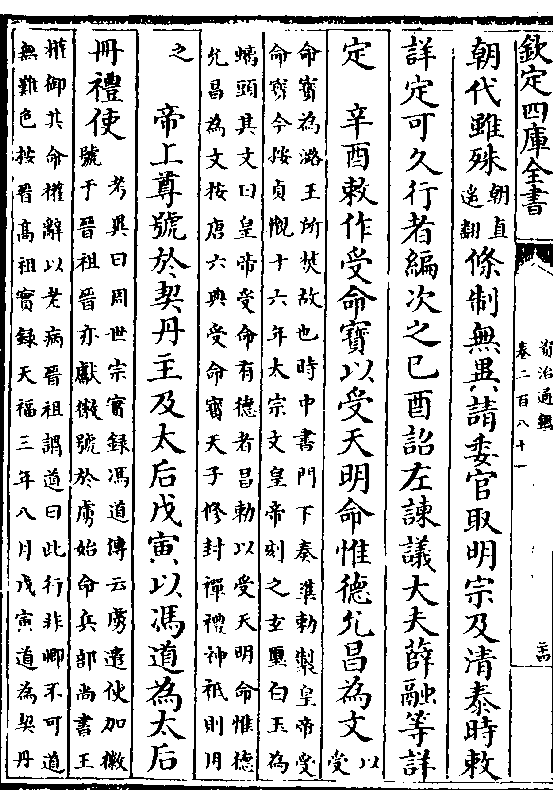 欽定四庫全書
資治通鑑
卷二百八十一
朝代雖殊朝直
遙翻條制無異請委官取明宗及清泰時敕
詳定可久行者編次之己酉詔左諫議大夫薛融等詳
定　辛酉敕作受命寶以受天明命惟德允昌為文以
受
命寶為潞王所焚故也時中書門下奏準勅製皇帝受
命寶今按貞觀十六年太宗文皇帝刻之玄璽白玉為
螭頭其文曰皇帝受命有德者昌勅以受天明命惟德
允昌為文按唐六典受命寶天子修封禪禮神祇則用
之　帝上尊號於契丹主及太后戊寅以馮道為太后
冊禮使考異曰周世宗實録馮道傳云虜遣使加徽
號于晉祖晉亦獻徽號於虜始命兵部尚書王
權御其命權辭以老病晉祖謂道曰此行非卿不可道
無難色按晉髙祖實録天福三年八月戊寅道為契丹